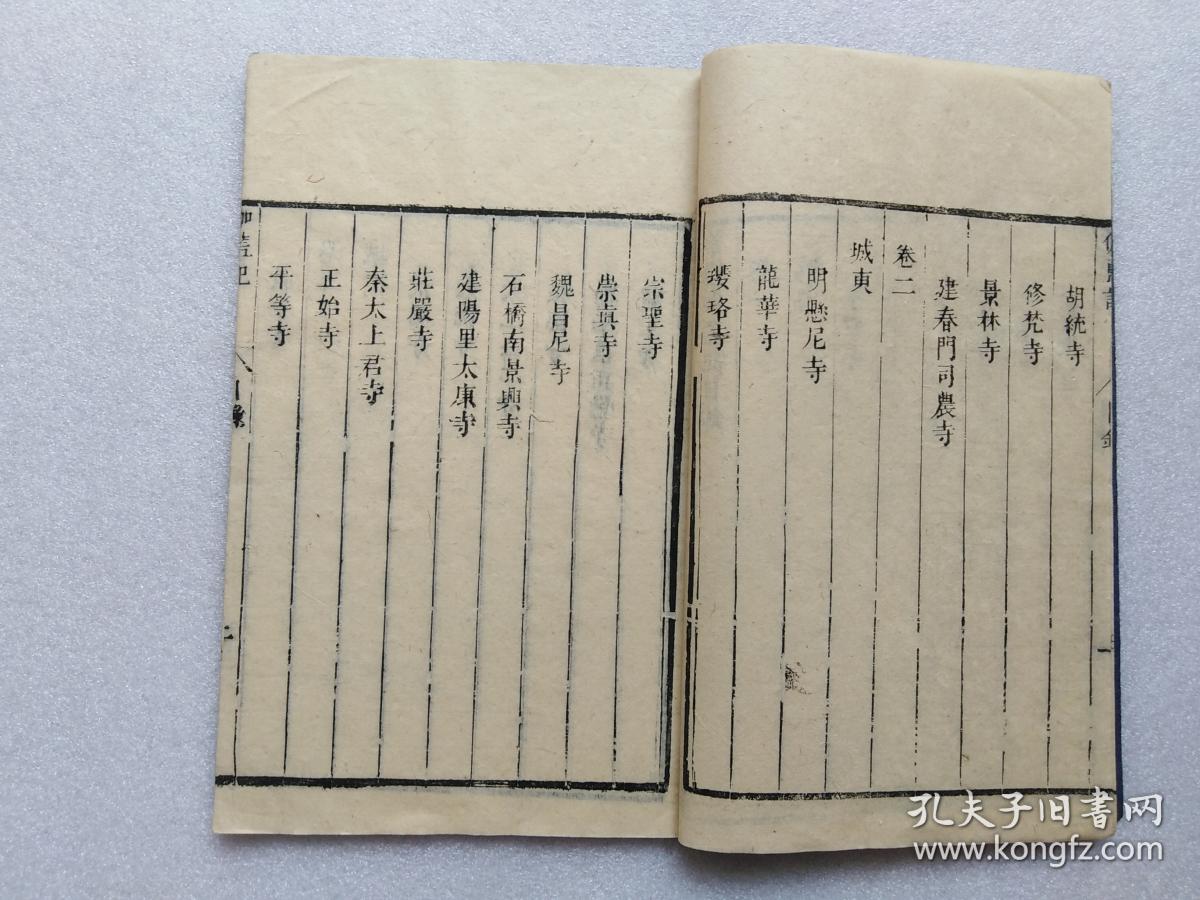 胡統寺
修梵寺
景林寺
建春門司農寺
卷二
城東
明懸尼寺
龍華寺
瓔珞寺
宗聖寺
崇真寺
魏昌尼寺
石橋南景興寺
建陽里太康寺
莊嚴寺
秦太上君寺
正始寺
平等寺
孔夫子旧书网
www.kongfz.com